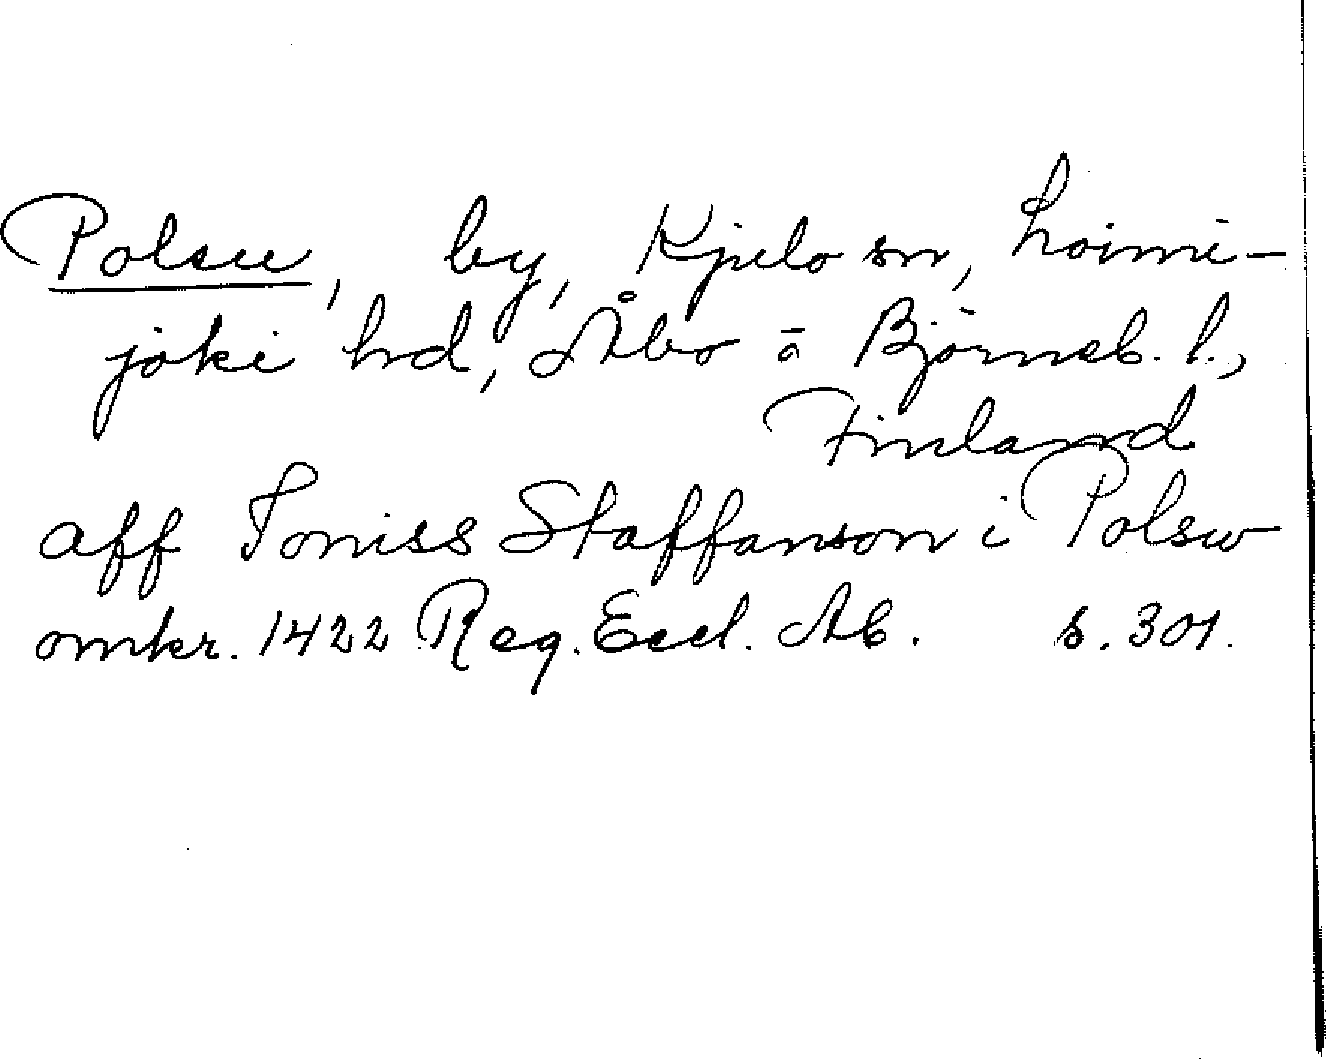 Polsu, by, Kjulo sn, Loimi-
joki hd, Åbo o Björneb. l.,
Finland
aff Joniss Staffanson i Polsw
omkr. 1422 Reg. Eccl. Ab. s. 301.